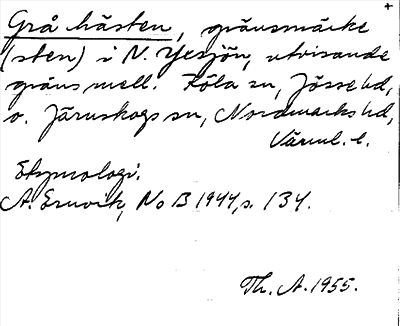 Grå hästen, gränsmärke
(sten) i N. Yesjön, utvisande
gräns mell. Köla sn, Jösse hd,
o. Järnskogs sn, Nordmarks hd,
Värml. l.
Etymologi.
A. Ernvik, No B 1944, s. 134.
Th. A. 1955.